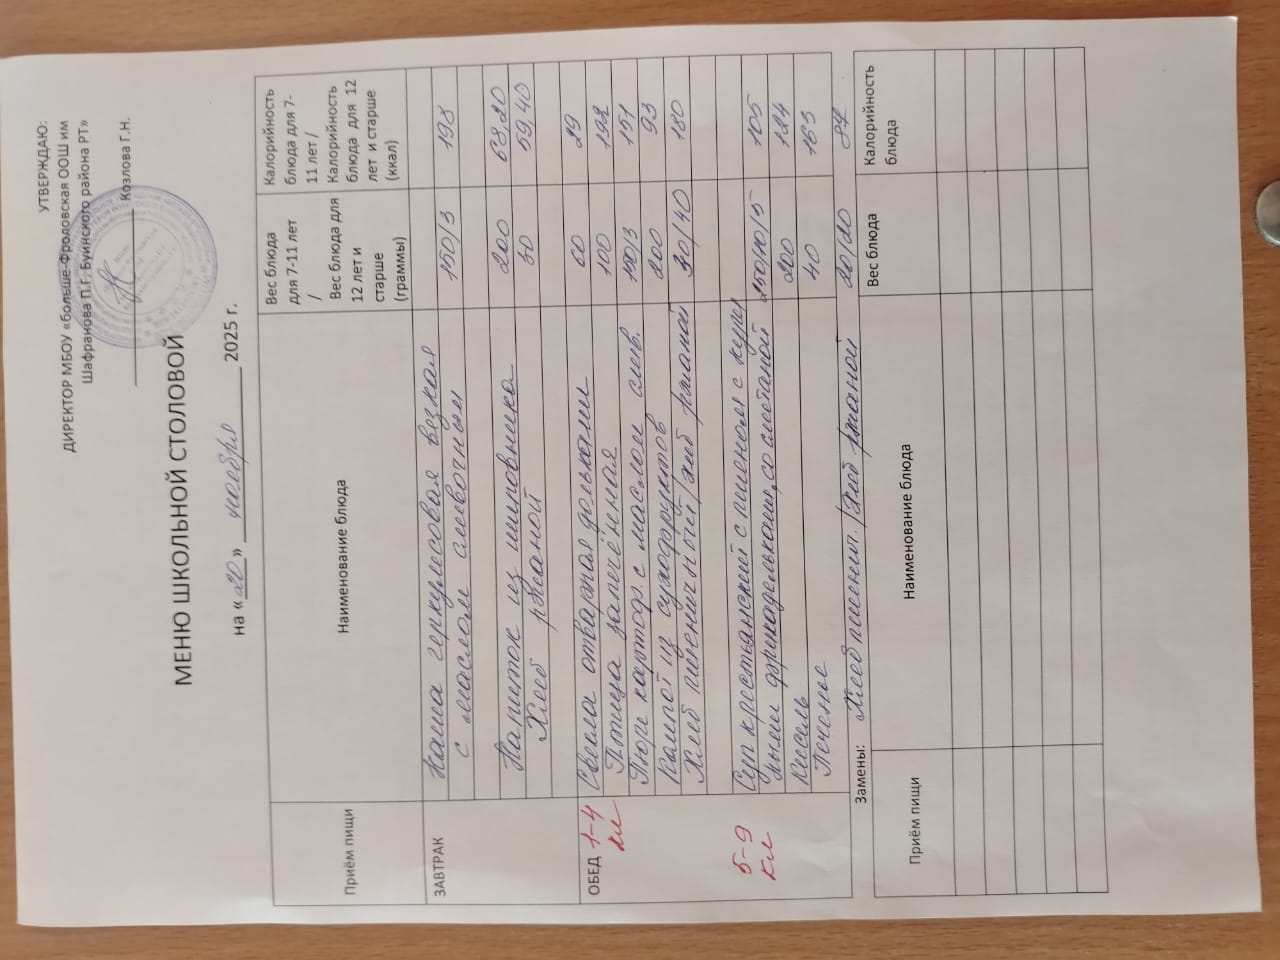 УТВЕРЖДАЮ:
ДИРЕКТОР МБОУ «больше-Фроловская ООШ им
Шафранова П.Г. Буинского района РТ»
Козлова Г.Н.
МЕНЮ ШКОЛЬНОЙ СТОЛОВОЙ
на «20» ноября 2025 г.
Приём пищи
Наименование блюда
Вес блюда
для 7-11 лет
/
Вес блюда для
12 лет и
старше
(граммы)
Калорийность
блюда для 7-
11 лет /
Калорийность
блюда для 12
лет и старше
(ккал)
ЗАВТРАК
Каша геркулесовая вязкая 150/3 198
с маслом сливочным
Напиток из шиповника 200 68,20
Хлеб ржаной 30 59,40
ОБЕД 1-4 кл
Свекла отварная дольками 60 29
Птица запечённая 100 192
Пюре картоф. с маслом слив. 150/3 151
Компот из сухофруктов 200 93
Хлеб пшеничный/хлеб ржаной 30/40 180
5-9 кл
Суп крестьянский с пшеном с кури 250/10/15 105
ными фрикадельками, со сметаной
Кисель 200 124
Печенье 40 163
Замены: Хлеб пшенич./Хлеб ржаной 20/20 87
Приём пищи
Наименование блюда
Вес блюда
Калорийность
блюда